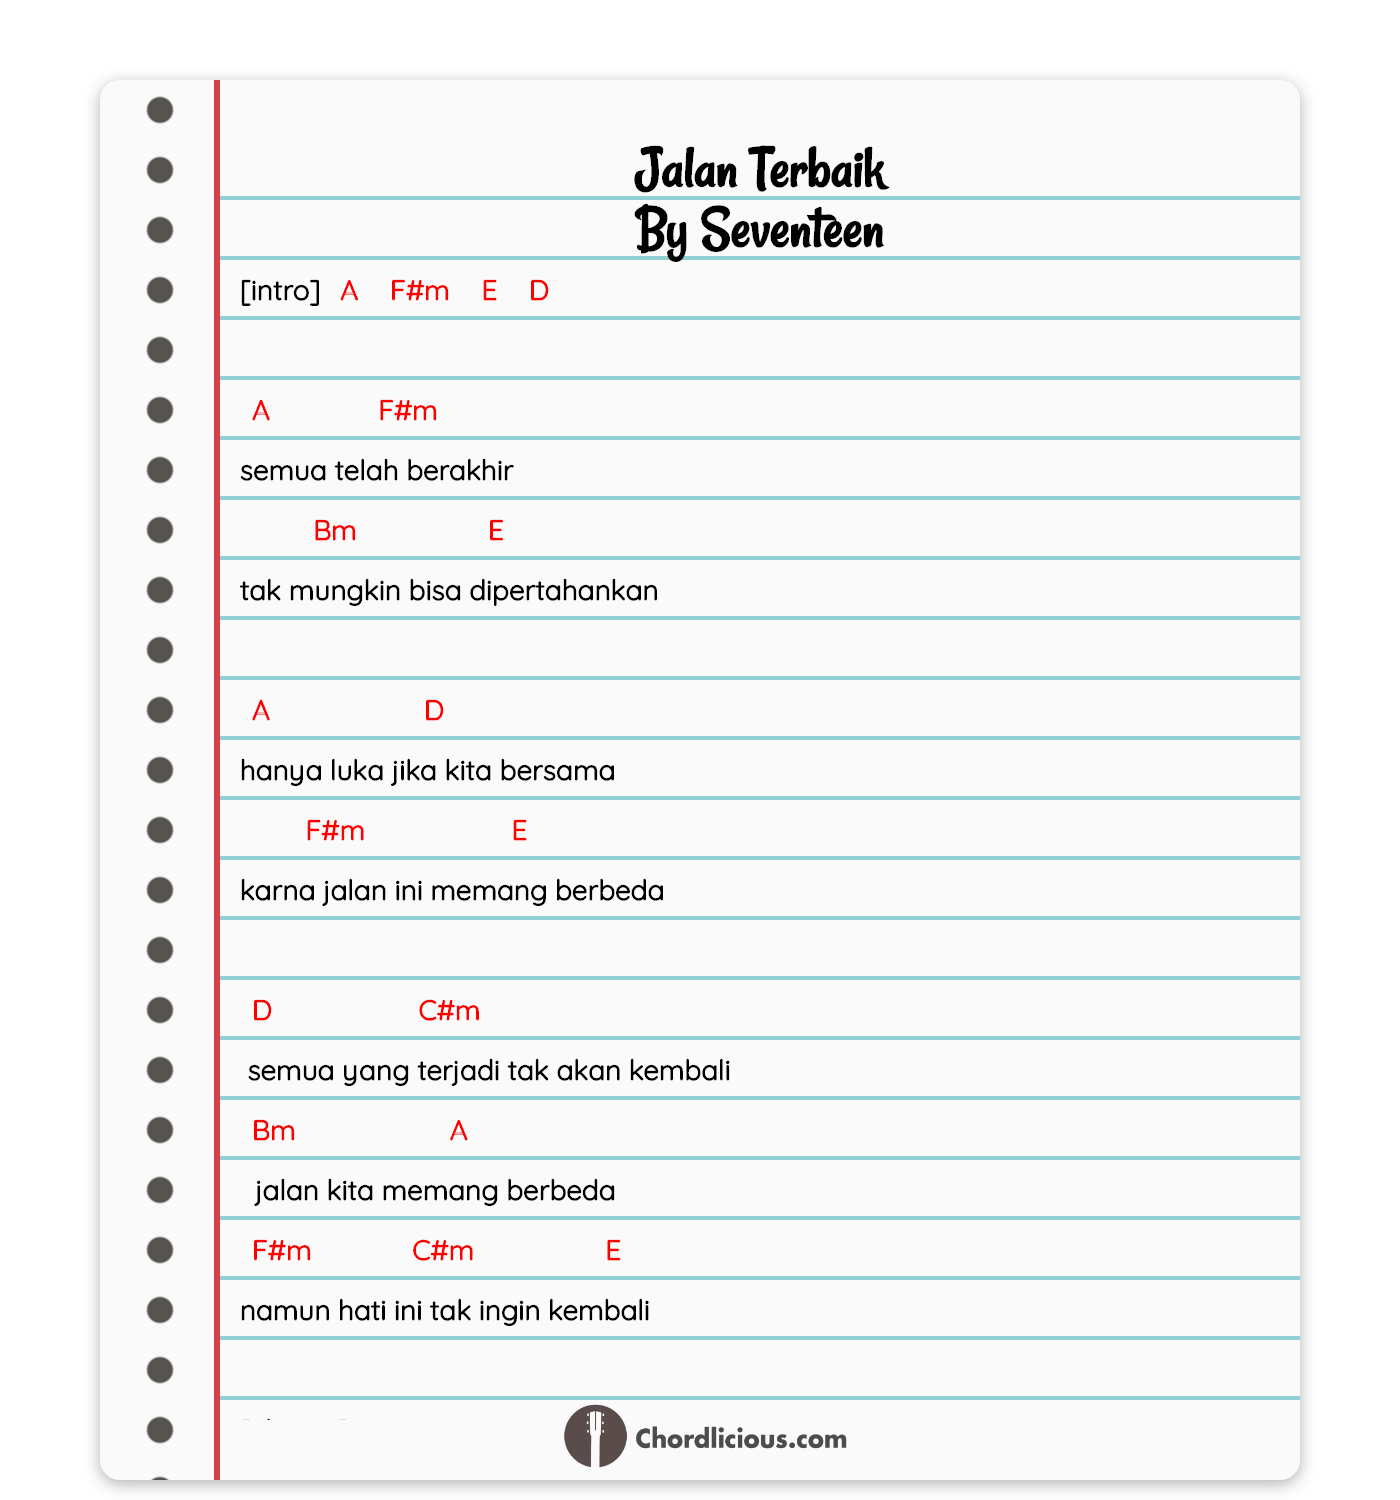 Jalan Terbaik
By Seventeen
[intro] A F#m E D
A F#m
semua telah berakhir
Bm E
tak mungkin bisa dipertahankan
A D
hanya luka jika kita bersama
F#m E
karna jalan ini memang berbeda
D C#m
semua yang terjadi tak akan kembali
Bm A
jalan kita memang berbeda
F#m C#m E
namun hati ini tak ingin kembali
Chordlicious.com